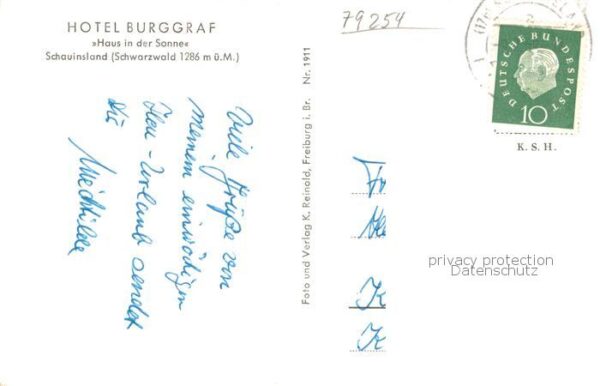 HOTEL BURGGRAF
»Haus in der Sonne«
Schauinsland (Schwarzwald 1286 m ü.M.)
Viele Grüße von
meinem einwöchigen
Urlaub sendet
Dir
Mechthilde
Foto und Verlag K. Reinold, Freiburg i. Br. Nr. 1911
79254
DEUTSCHE BUNDESPOST
10
K. S. H.
Fr
K
K
privacy protection
Datenschutz